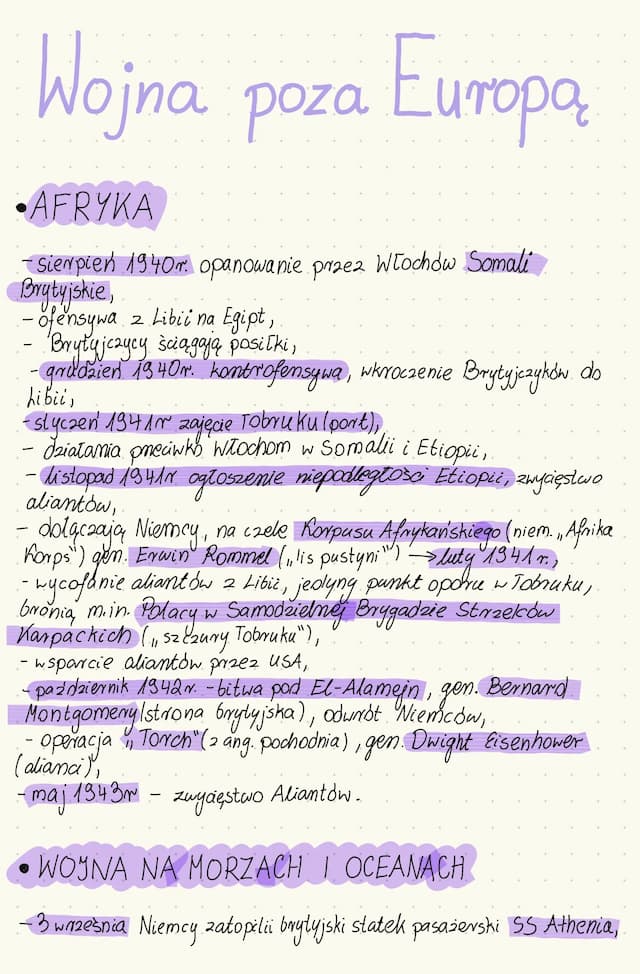 Wojna poza Europą
• AFRYKA
- sierpień 1940r. opanowanie przez Włochów Somali
Brytyjskie,
- ofensywa z Libii na Egipt,
- Brytyjczycy ściągają posiłki,
- grudzień 1940r. kontrofensywa, wkroczenie Brytyjczyków do
Libii,
- styczeń 1941r zajęcie Tobruku (port),
- działania przeciwko Włochom w Somalii i Etiopii,
- listopad 1941r. ogłoszenie niepodległości Etiopii, zwycięstwo
aliantów,
- dołączają Niemcy, na czele Korpusu Afrykańskiego (niem. „Afrika
Korps") gen. Erwin Rommel („lis pustyni") → luty 1941 r.,
- wycofanie aliantów z Libii, jedyny punkt oporu w Tobruku,
bronią m.in. Polacy w Samodzielnej Brygadzie Strzelców
Karpackich („szczury Tobruku"),
- wsparcie aliantów przez USA,
- październik 1942r. - bitwa pod El-Alamejn, gen. Bernard
Montgomery (strona brytyjska), odwrót Niemców,
- operacja „Torch" (z ang. pochodnia), gen. Dwight Eisenhower
(alianci),
- maj 1943r - zwycięstwo Aliantów.
• WOJNA NA MORZACH I OCEANACH
- 3 września Niemcy zatopilii brytyjski statek pasażerski SS Athenia,